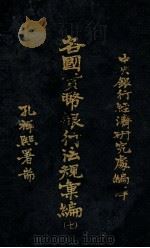 中央銀行經濟研究處編
各國貨幣銀行法規彙編
(七)
孔祥熙署